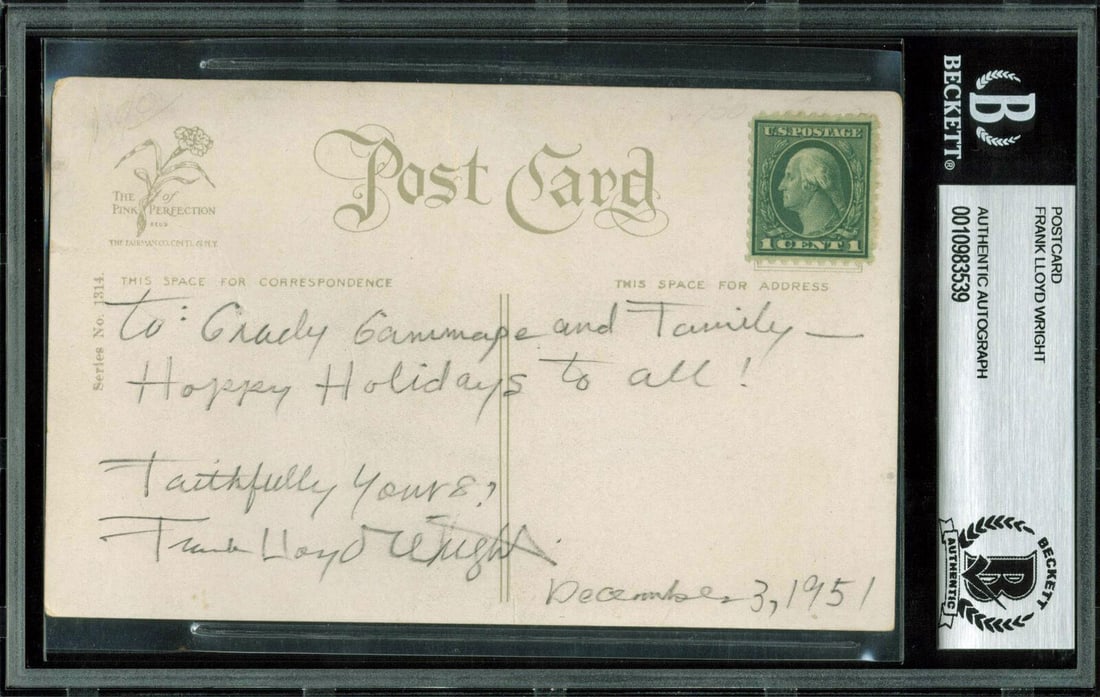 THE of
PINK PERFECTION
REG'D
THE FAIRMAN CO. CIN'TI. & N.Y.
Post Card
U.S. POSTAGE
1 CENT 1
THIS SPACE FOR CORRESPONDENCE
THIS SPACE FOR ADDRESS
Series No. 1314.
To: Grady Gammage and Family —
Happy Holidays to all!
Faithfully Yours,
Frank Lloyd Wright
December 3, 1951
BECKETT®
B
POSTCARD
FRANK LLOYD WRIGHT
AUTHENTIC AUTOGRAPH
0010983539
BECKETT
B
AUTHENTIC